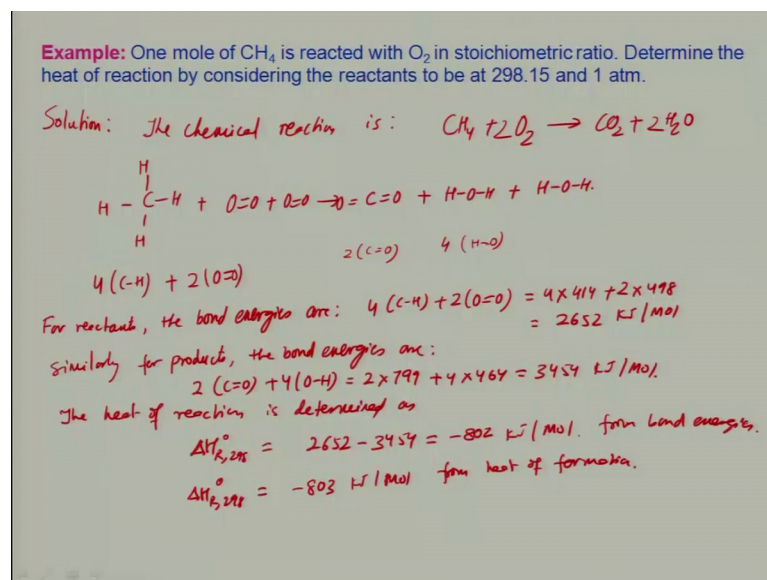 Example: One mole of CH₄ is reacted with O₂ in stoichiometric ratio. Determine the
heat of reaction by considering the reactants to be at 298.15 and 1 atm.
Solution: The chemical reaction is: CH₄ + 2O₂ → CO₂ + 2H₂O
H
|
H - C - H + O=O + O=O → O=C=O + H-O-H + H-O-H.
|
H
2(C=O) 4(H-O)
4(C-H) + 2(O=O)
For reactants, the bond energies are: 4(C-H) + 2(O=O) = 4×414 + 2×498
= 2652 KJ/Mol
Similarly for products, the bond energies are:
2(C=O) + 4(O-H) = 2×799 + 4×464 = 3454 KJ/Mol.
The heat of reaction is determined as
ΔH°R,298 = 2652 - 3454 = -802 KJ/Mol. from bond energies.
ΔH°R,298 = -803 KJ/Mol from heat of formation.